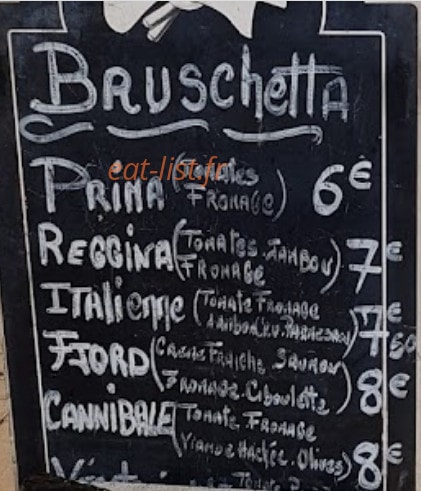 BRUSCHETTA
eat-list.fr
PRIMA (Tomates 6€
FROMAGE)
REGGINA (TOMATES.JAMBON) 7€
FROMAGE
ITALIENNE (TOMATE FROMAGE 7€
JAMBON CRU.PARMESAN) 50
FJORD (CREME FRAICHE SAUMON
FROMAGE.CIBOULETTE) 8€
CANNIBALE (TOMATE.FROMAGE
VIANDE HACHÉE.OLIVES) 8€